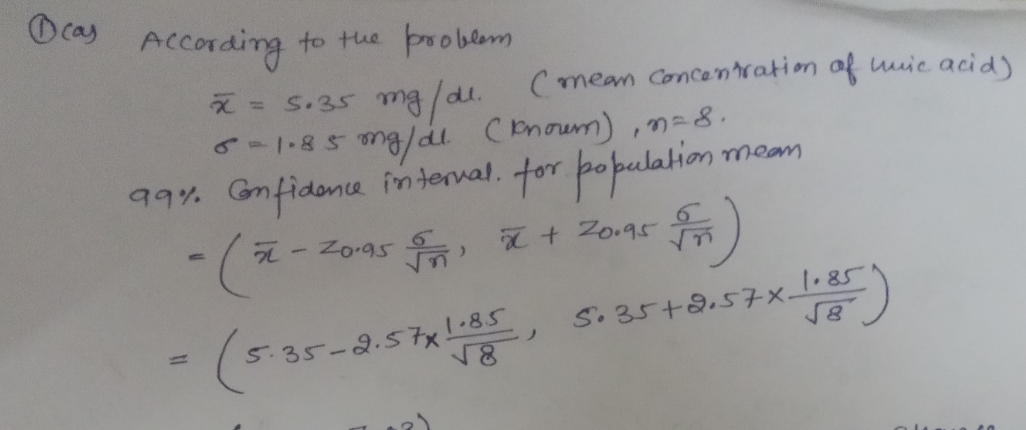 ① (a) According to the problem
x̄ = 5.35 mg/dl. (mean concentration of uric acid)
σ = 1.85 mg/dl (known), n=8.
99% Confidence interval. for population mean
= ( x̄ - Z0.95 σ/√n, x̄ + Z0.95 σ/√n )
= ( 5.35 - 2.57 × 1.85/√8, 5.35 + 2.57 × 1.85/√8 )